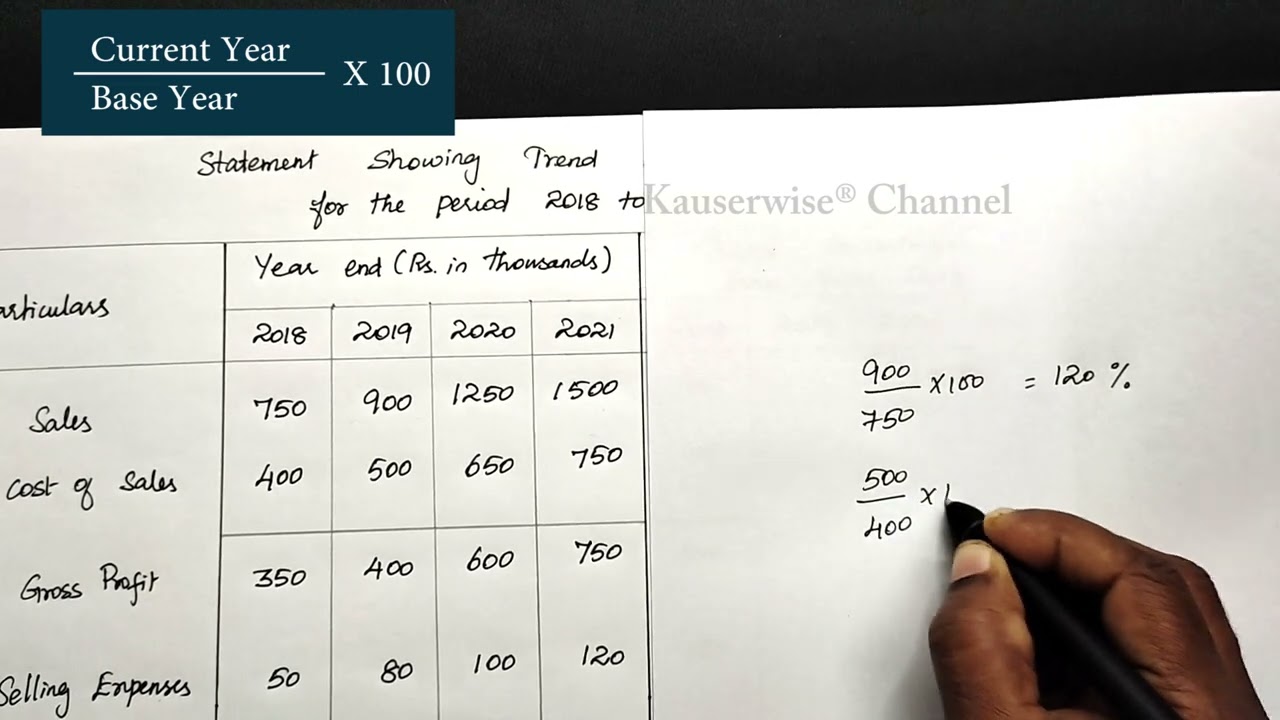 Current Year
Base Year
X 100
Statement Showing Trend
for the period 2018 to
Kauserwise® Channel
articulars
Year end (Rs. in thousands)
2018 2019 2020 2021
Sales 750 900 1250 1500
Cost of Sales 400 500 650 750
Gross Profit 350 400 600 750
Selling Expenses 50 80 100 120
900
750
×100 = 120 %
500
400
×1